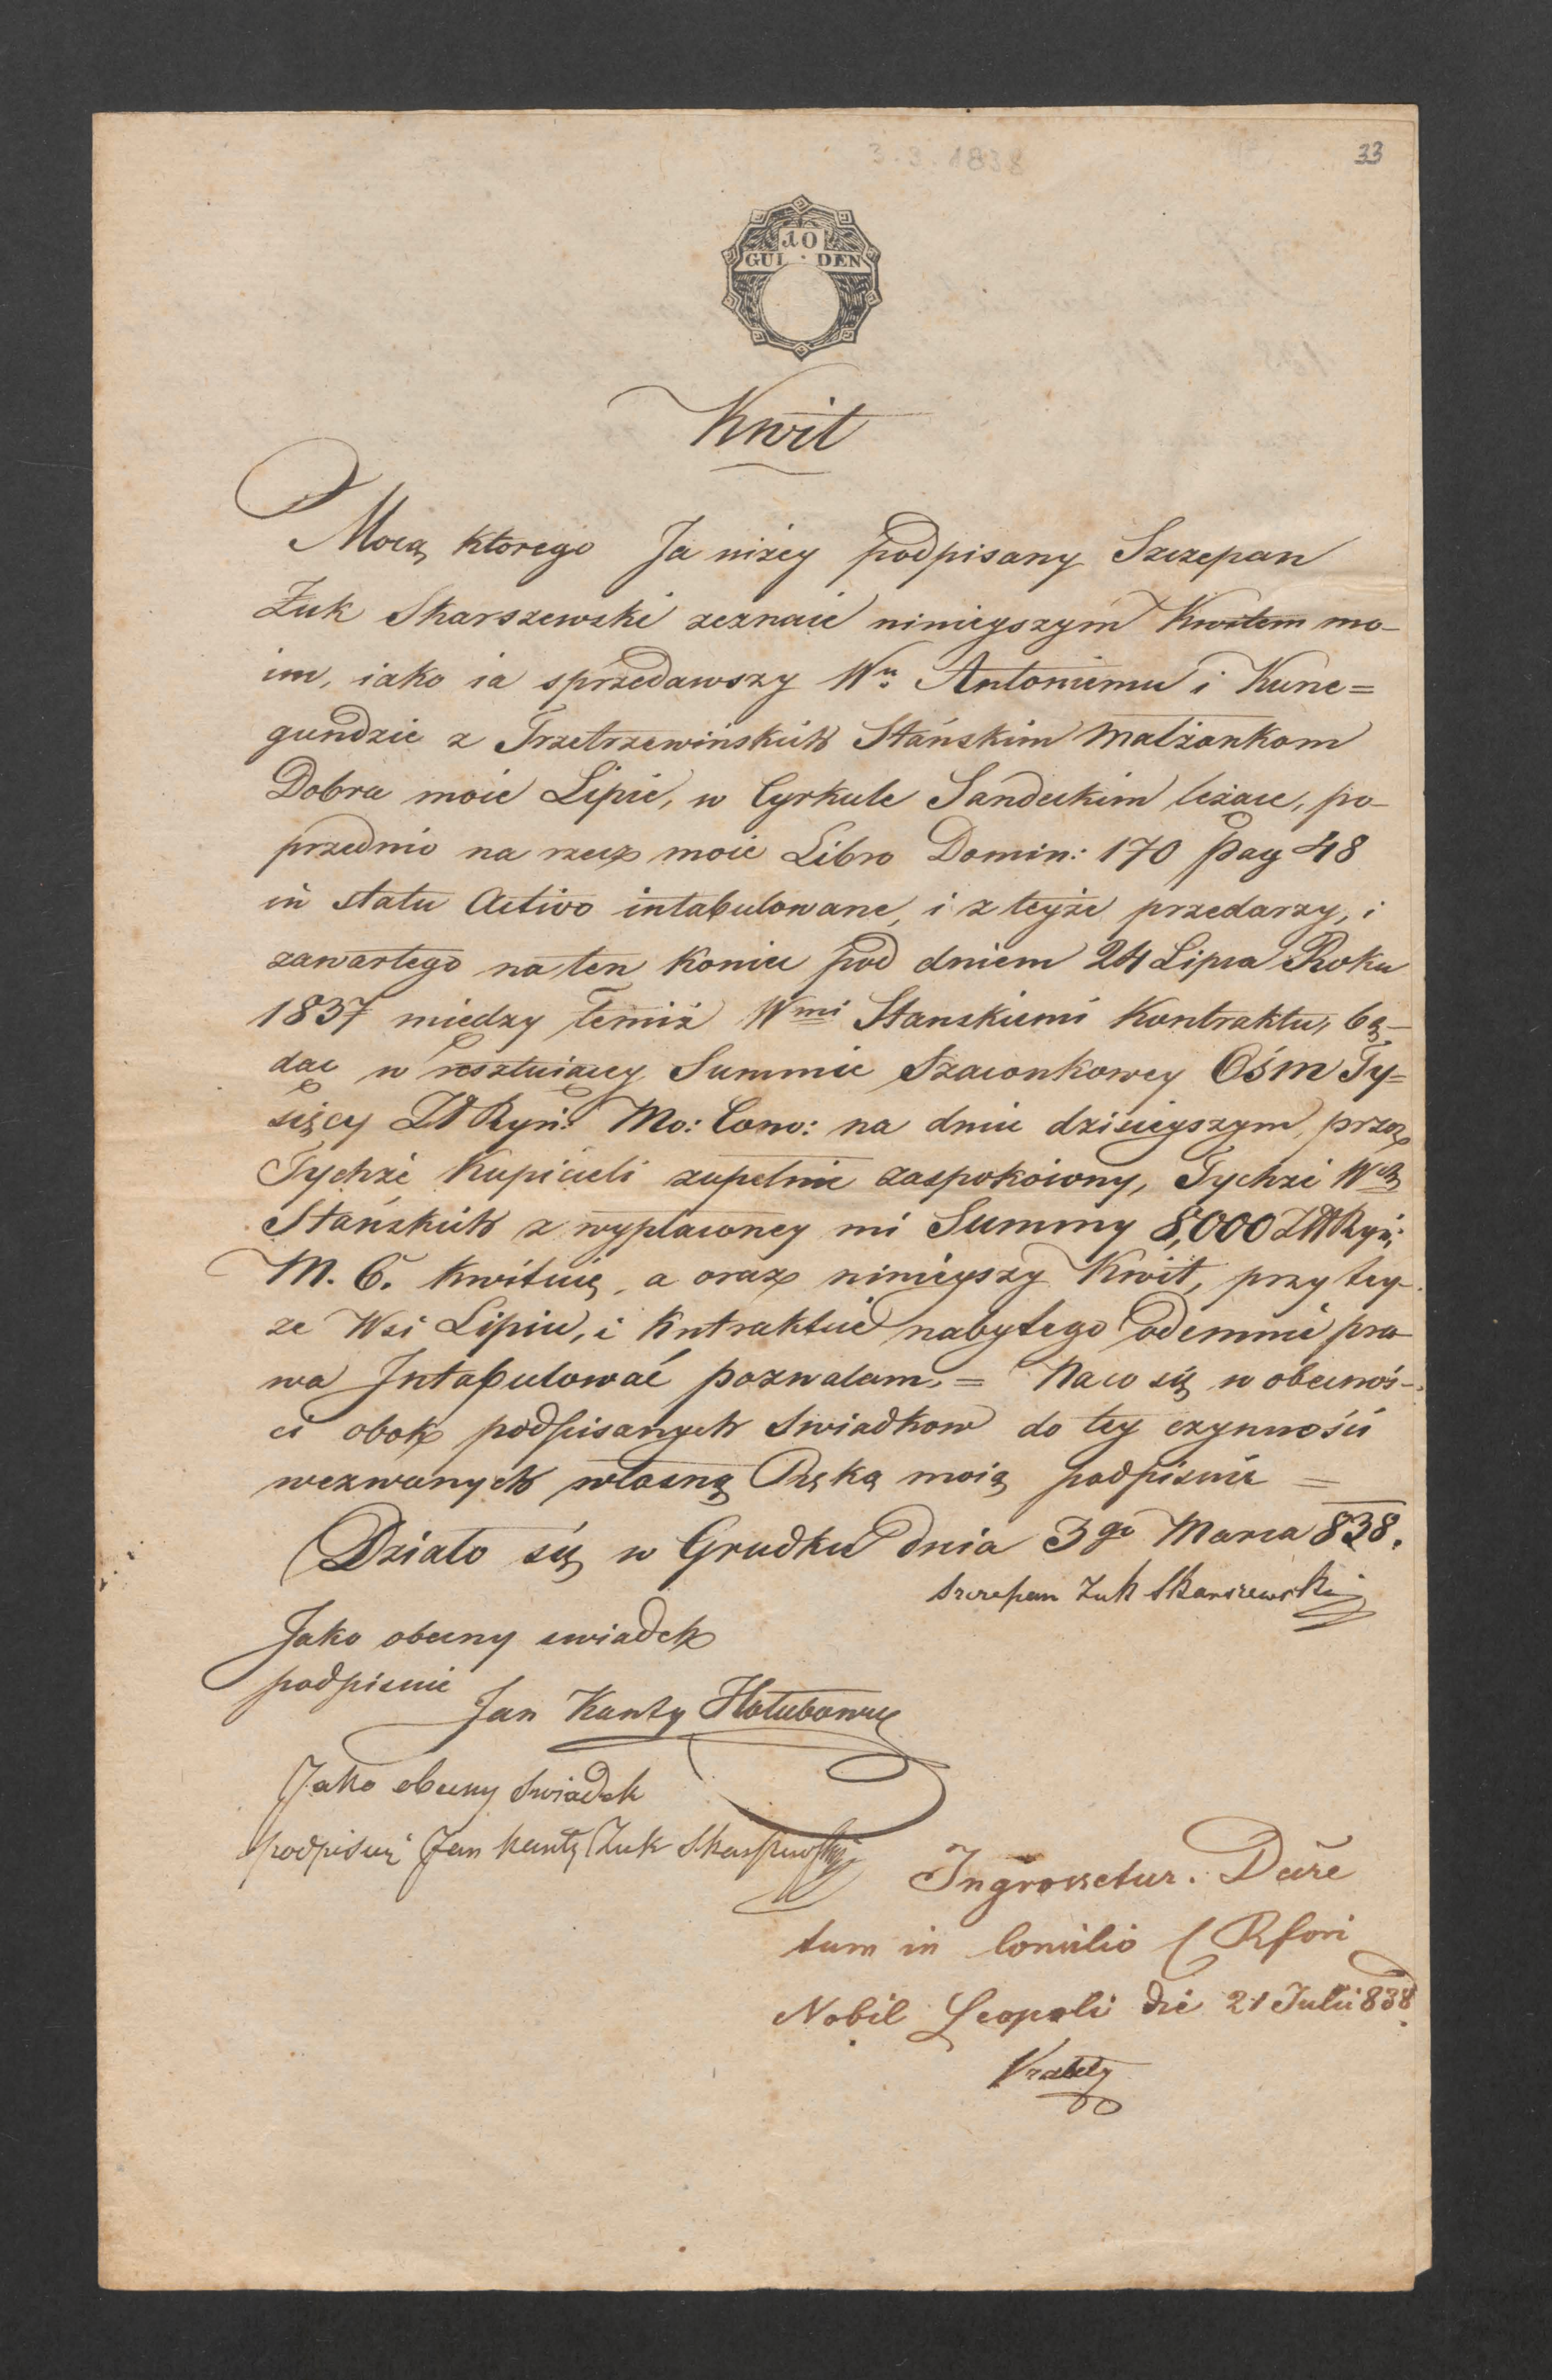 3.3.1838
33
10
GUL·DEN
Kwit
Mocą ktorego Ja niżey podpisany Szczepan
Żuk Skarszewski zeznaie ninieyszym Kwitem mo-
im, iako ia sprzedawszy Wu Antoniemu i Kune=
gundzie z Trzetrzewińskich Stańskim Małżonkom
Dobra moie Lipie, w Cyrkule Sandeckim leżące, po-
przednio na rzecz moie Libro Domin: 170 Pag 48
in statu Activo intabulowane, i z teyże przedarzy, i
zawartego na ten koniec pod dniem 24 Lipca Roku
1837 miedzy temiż Wmi Stanskiemi Kontraktu, bę-
dąc w resztuiącey Summie Szacunkowey Ośm Ty=
sięcy Zł Ryn: Mo: Conv: na dniu dzisieyszym, przez
Tychże Kupicieli zupełnie zaspokoiony, Tychże Wch
Stańskich z wypłaconey mi Summy 8,000 Zł Ryń:
M. C. kwituię, a oraz ninieyszy Kwit, przy tey-
że Wsi Lipiu, i kntraktcie nabytego odemnie pra
wa Intabulować pozwalam. = Na co się w obecnoś-
ci obok podpisanych Swiadkow do tey czynności
wezwanych własną Ręką moią podpisuie =
Działo się w Grudku dnia 3go Marca 838.
Szczepan Żuk Skarszewski
Jako obecny swiadek
podpisuie
Jan Kanty Hołubowicz
Jako obecny Swiadek
podpisuię Jan Kanty Żuk Skarszewski
Ingrossetur.
tum in Consilio C R fori
Nobil Leopoli die 21 Julii 838.